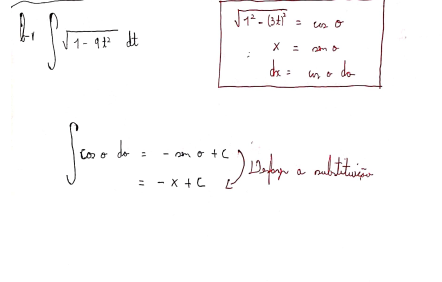 b. ∫ √(1 - 9t²) dt
√(1² - (3t)²) = cos θ
∴ x = sen θ
dx = cos θ dθ
∫ cos θ dθ = - sen θ + C
= - x + C
Desfazer a substituição